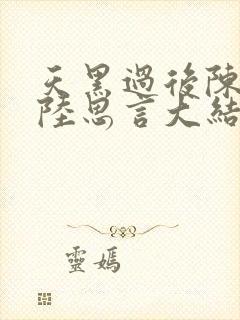 天黑過後陳
陸思言大結
靈媽